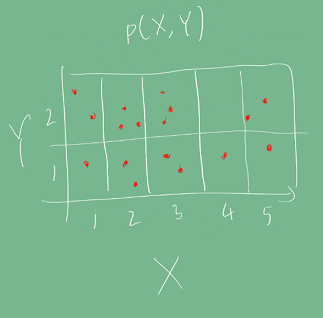 P(X,Y)
Y
2
1
1 2 3 4 5
X